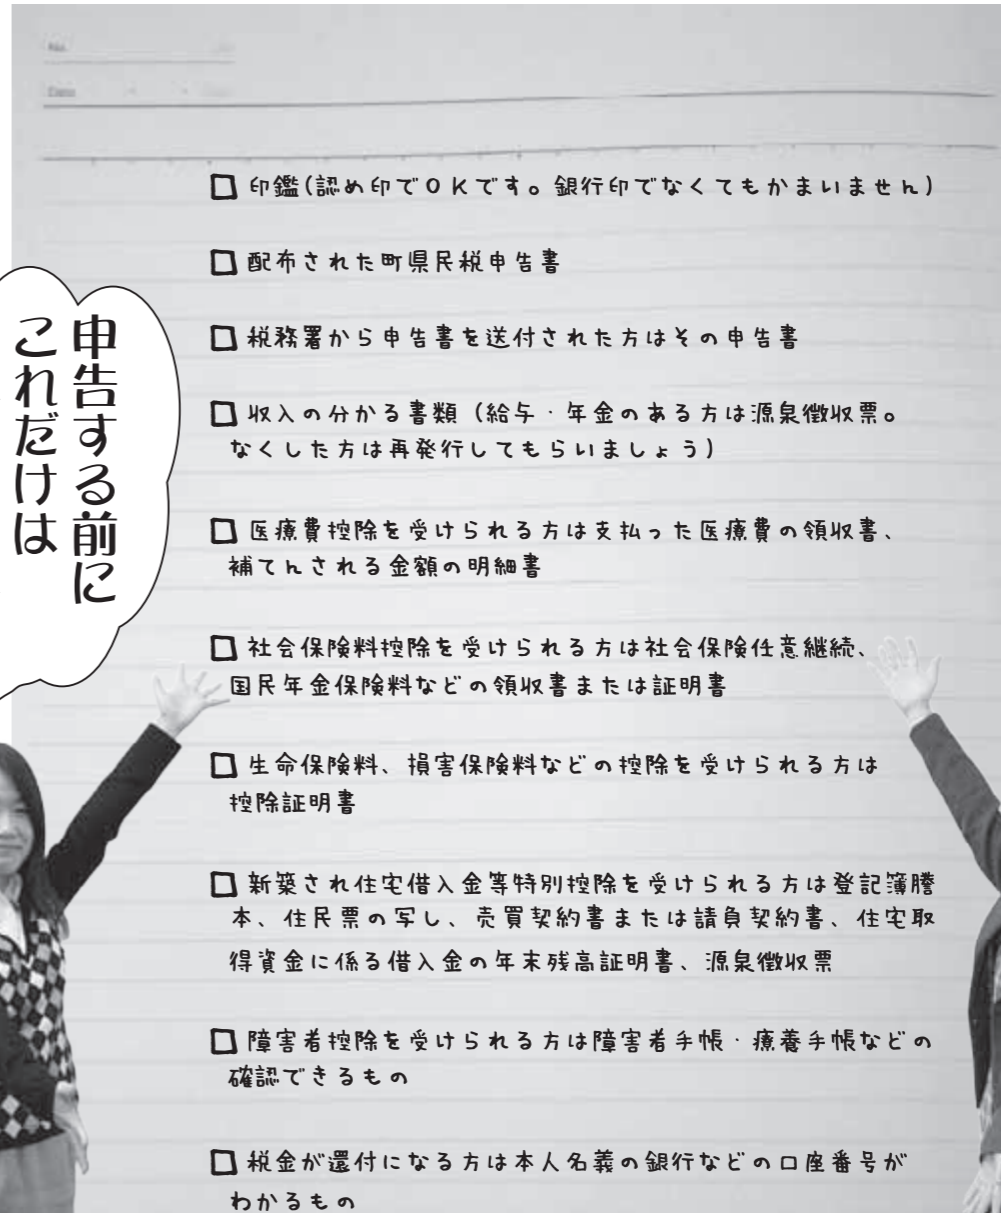 No.
Date
申告する前に
これだけは
□ 印鑑(認め印でOKです。銀行印でなくてもかまいません)
□ 配布された町県民税申告書
□ 税務署から申告書を送付された方はその申告書
□ 収入の分かる書類（給与・年金のある方は源泉徴収票。
なくした方は再発行してもらいましょう）
□ 医療費控除を受けられる方は支払った医療費の領収書、
補てんされる金額の明細書
□ 社会保険料控除を受けられる方は社会保険任意継続、
国民年金保険料などの領収書または証明書
□ 生命保険料、損害保険料などの控除を受けられる方は
控除証明書
□ 新築され住宅借入金等特別控除を受けられる方は登記簿謄
本、住民票の写し、売買契約書または請負契約書、住宅取
得資金に係る借入金の年末残高証明書、源泉徴収票
□ 障害者控除を受けられる方は障害者手帳・療養手帳などの
確認できるもの
□ 税金が還付になる方は本人名義の銀行などの口座番号が
わかるもの